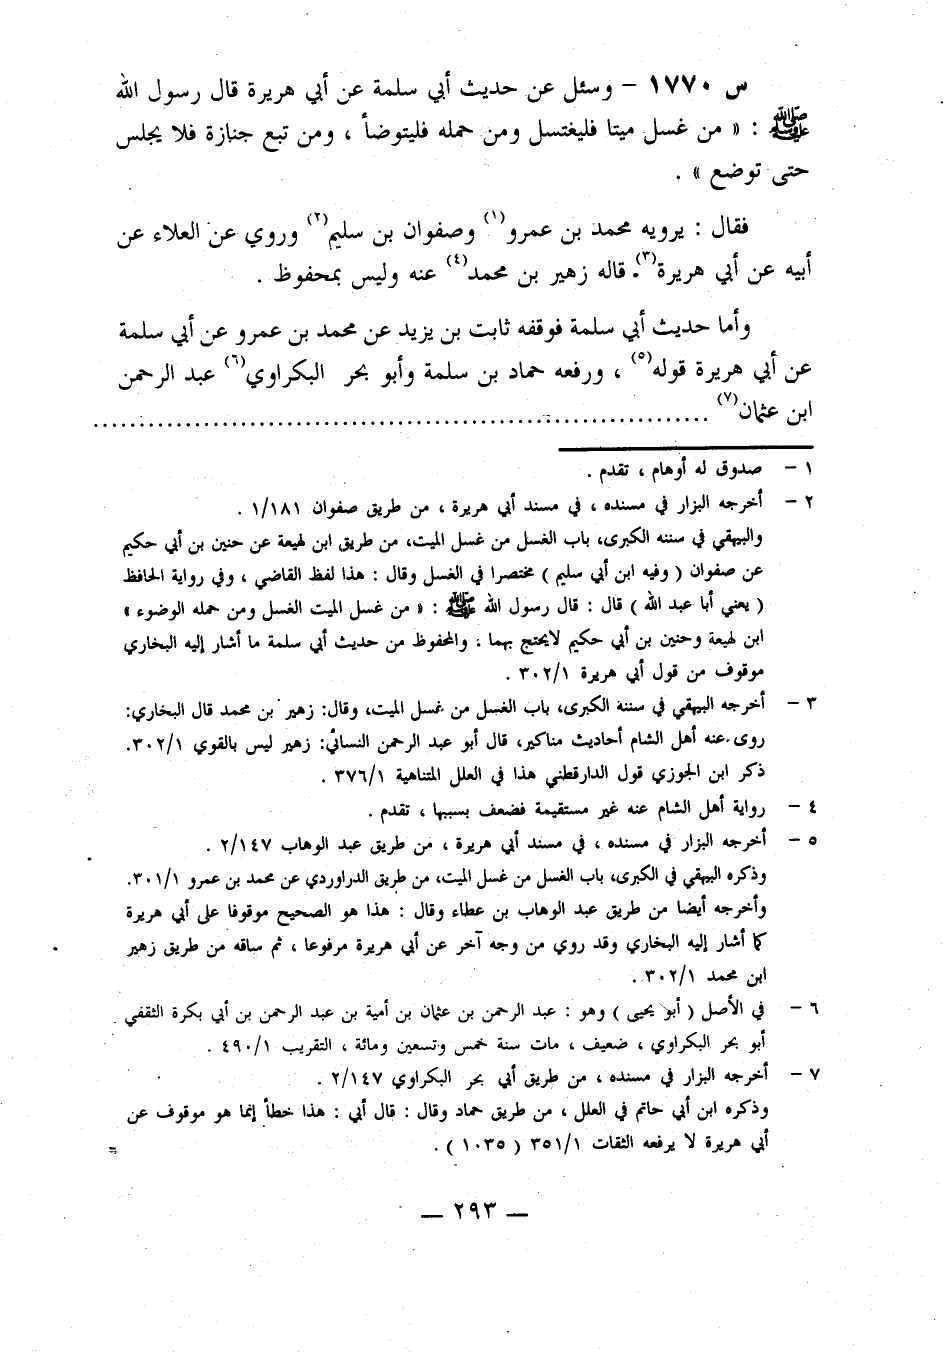 س ١٧٧٠ – وسئل عن حديث أبي سلمة عن أبي هريرة قال رسول الله
ﷺ : « من غسل ميتا فليغتسل ومن حمله فليتوضأ ، ومن تبع جنازة فلا يجلس
حتى توضع » .
فقال : يرويه محمد بن عمرو(١) وصفوان بن سليم(٢) وروي عن العلاء عن
أبيه عن أبي هريرة(٣). قاله زهير بن محمد(٤) عنه وليس بمحفوظ .
وأما حديث أبي سلمة فوقفه ثابت بن يزيد عن محمد بن عمرو عن أبي سلمة
عن أبي هريرة قوله(٥) ، ورفعه حماد بن سلمة وأبو بحر البكراوي(٦) عبد الرحمن
ابن عثمان(٧) ......................................................................
١ – صدوق له أوهام ، تقدم .
٢ – أخرجه البزار في مسنده ، في مسند أبي هريرة ، من طريق صفوان ١/١٨١ .
والبيهقي في سننه الكبرى، باب الغسل من غسل الميت، من طريق ابن لهيعة عن حنين بن أبي حكيم
عن صفوان ( وفيه ابن أبي سليم ) مختصرا في الغسل وقال : هذا لفظ القاضي ، وفي رواية الحافظ
( يعني أبا عبد الله ) قال : قال رسول الله ﷺ : « من غسل الميت الغسل ومن حمله الوضوء »
ابن لهيعة وحنين بن أبي حكيم لايحتج بهما ؛ والمحفوظ من حديث أبي سلمة ما أشار إليه البخاري
موقوف من قول أبي هريرة ٣٠٢/١ .
٣ – أخرجه البيهقي في سننه الكبرى، باب الغسل من غسل الميت، وقال: زهير بن محمد قال البخاري:
روى عنه أهل الشام أحاديث مناكير، قال أبو عبد الرحمن النسائي: زهير ليس بالقوي ٣٠٢/١.
ذكر ابن الجوزي قول الدارقطني هذا في العلل المتناهية ٣٧٦/١ .
٤ – رواية أهل الشام عنه غير مستقيمة فضعف بسببها ، تقدم .
٥ – أخرجه البزار في مسنده ، في مسند أبي هريرة ، من طريق عبد الوهاب ٢/١٤٧ .
وذكره البيهقي في الكبرى، باب الغسل من غسل الميت، من طريق الدراوردي عن محمد بن عمرو ٣٠١/١.
وأخرجه أيضا من طريق عبد الوهاب بن عطاء وقال : هذا هو الصحيح موقوفا على أبي هريرة
كما أشار إليه البخاري وقد روي من وجه آخر عن أبي هريرة مرفوعا ، ثم ساقه من طريق زهير
ابن محمد ٣٠٢/١ .
٦ – في الأصل ( أبو يحيى ) وهو : عبد الرحمن بن عثمان بن أمية بن عبد الرحمن بن أبي بكرة الثقفي
أبو بحر البكراوي ، ضعيف ، مات سنة خمس وتسعين ومائة ، التقريب ٤٩٠/١ .
٧ – أخرجه البزار في مسنده ، من طريق أبي بحر البكراوي ٢/١٤٧ .
وذكره ابن أبي حاتم في العلل ، من طريق حماد وقال : قال أبي : هذا خطأ إنما هو موقوف عن
أبي هريرة لا يرفعه الثقات ٣٥١/١ ( ١٠٣٥ ) . =
— ٢٩٣ —